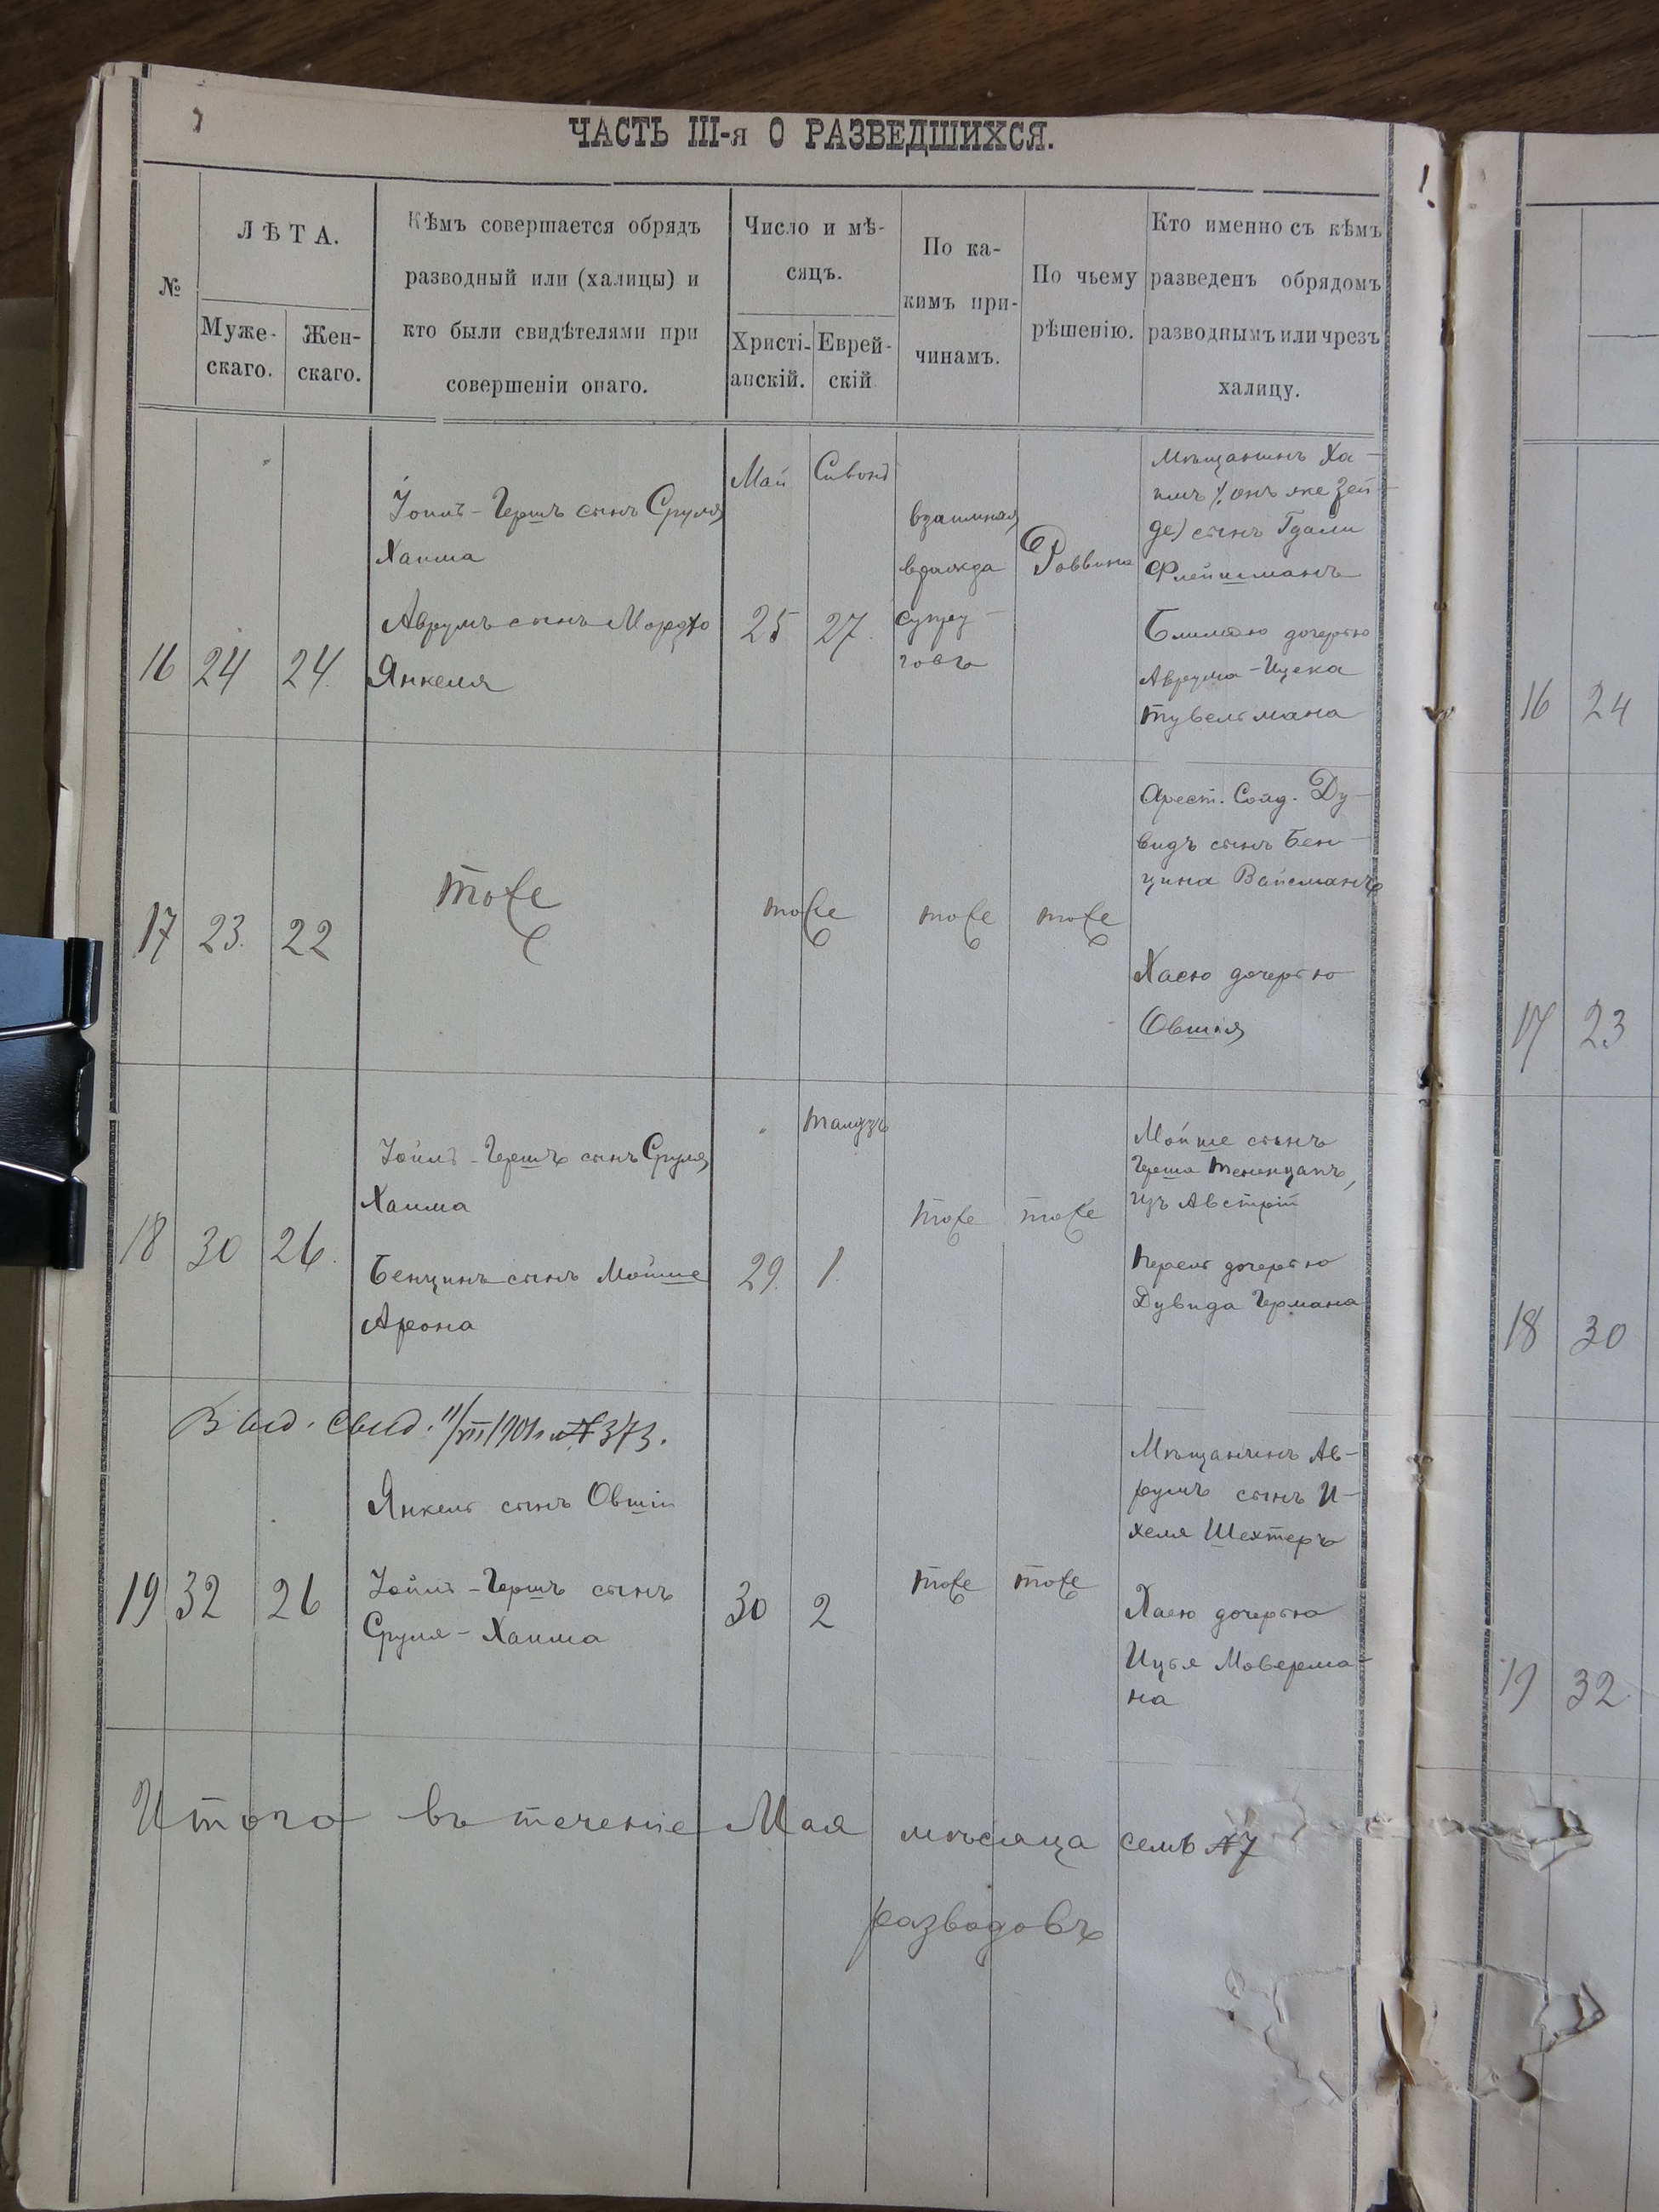 ЧАСТЬ III-я О РАЗВЕДШИХСЯ.
№
ЛѢТА.
Муже-
скаго.
Жен-
скаго.
Кѣмъ совершается обрядъ
разводный или (халицы) и
кто были свидѣтелями при
совершеніи онаго.
Число и мѣ-
сяцъ.
Христі-
анскій.
Еврей-
скій
По ка-
кимъ при-
чинамъ.
По чьему
рѣшенію.
Кто именно съ кѣмъ
разведенъ обрядомъ
разводнымъ или чрезъ
халицу.
16 24 24
Іоилъ-Гершъ сынъ Сруля
Хаима
Аврумъ сынъ Мордко
Янкеля
Май Сивонъ
25 27
взаимная
вражда
супру-
говъ
Раввина
Мѣщанинъ Ха-
имъ (онъ же Зей-
де) сынъ Гдали
Флейшманъ
Блимою дочерью
Аврума-Ицека
Тувельмана
17 23 22
тоже
тоже
тоже
тоже
Арест. Дy-
видъ сынъ Бен-
циna Вайсманъ
Хаею дочерью
Овшія
18 30 26
Іойлъ-Гершъ сынъ Сруля
Хаима
Бенцинъ сынъ Мойше
Арона
" Тамузъ
29 1
тоже
тоже
Мойше сынъ
Герша
изъ Австріи
Перель дочерью
Дувида Германа
Выд. свид. 11/VII 1901 г. № 373.
19 32 26
Янкель сынъ Овшіи
Іойлъ-Гершъ сынъ
Сруля-Хаима
30 2
тоже
тоже
Мѣщанинъ Ав-
румъ сынъ И-
хеля Шехтеръ
Хаею дочерью
Ицья Маверма-
на
Итого въ теченіе Мая мѣсяца семь № 7
разводовъ
16 24
17 23
18 30
19 32